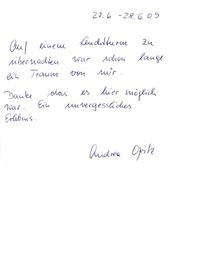 27.6 - 28.6 09
Auf einem Leuchtturm zu
übernachten war schon lange
ein Traum von mir.
Danke das es hier möglich
war. Ein unvergessliches
Erlebnis.
Andrea Opitz